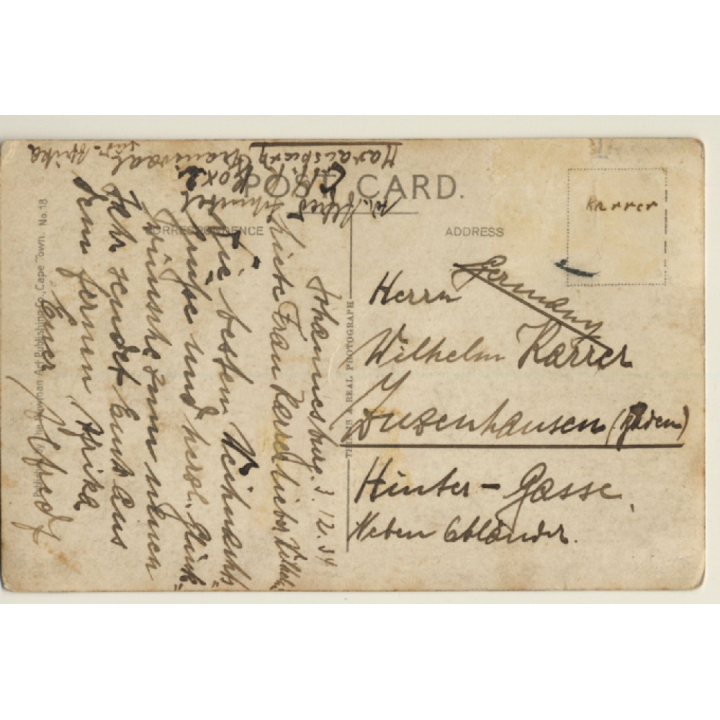 POST CARD.
CORRESPONDENCE
ADDRESS
Karrer
Johannesburg. 3. 12. 34
Liebe Frau Karrer, lieber Wilhelm
Die besten Weihnachts-
grüße und herzl. Glück-
wünsche zum neuen
Jahr sendet Euch aus
dem fernen Afrika
Euer Alfred
Alfred
Box
Transvaal
Süd-Afrika
Germany
Herrn
Wilhelm Karrer
Duzenhausen (Baden)
Hinter-Gasse
Neben
THIS IS A REAL PHOTOGRAPH
Publishing Co., Cape Town. No. 18